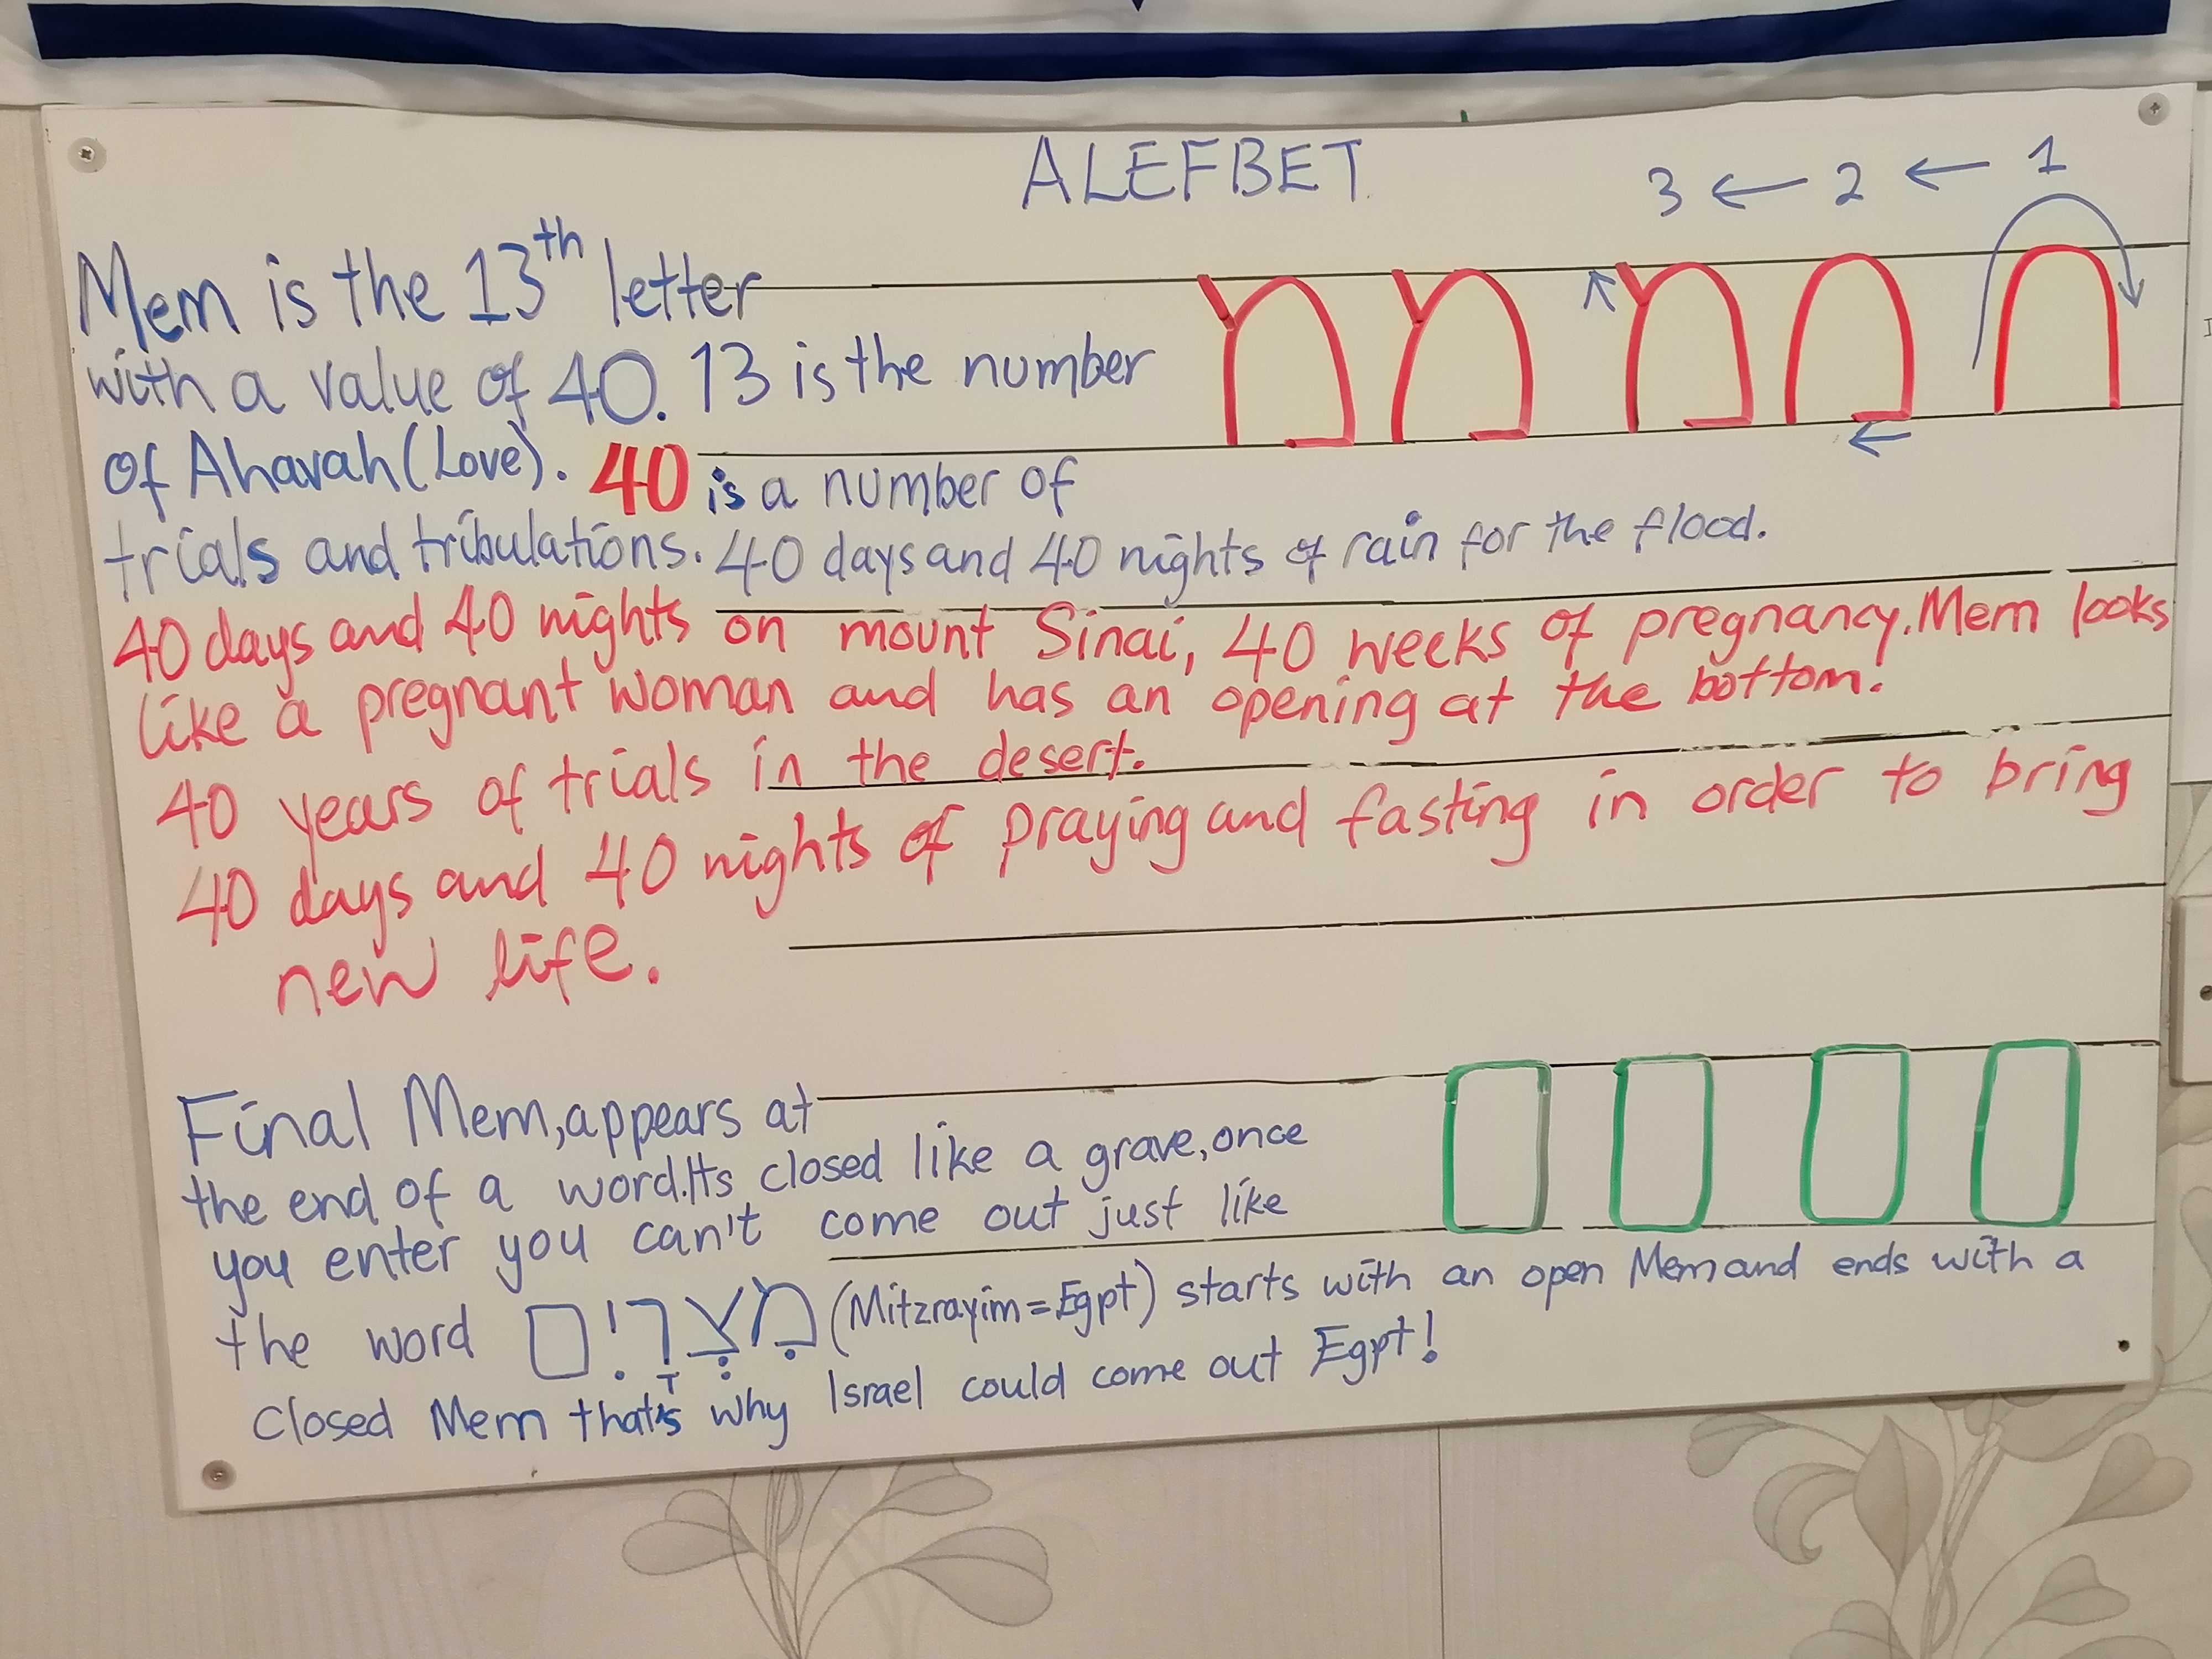 ALEFBET
3 ← 2 ← 1
Mem is the 13th letter
with a value of 40. 13 is the number
of Ahavah (Love). 40 is a number of
trials and tribulations. 40 days and 40 nights of rain for the flood.
40 days and 40 nights on mount Sinai, 40 weeks of pregnancy. Mem looks
like a pregnant woman and has an opening at the bottom!
40 years of trials in the desert.
40 days and 40 nights of praying and fasting in order to bring
new life.
Final Mem, appears at
the end of a word. Its closed like a grave, once
you enter you can't come out just like
the word מִצְרָיִם (Mitzrayim = Egpt) starts with an open Mem and ends with a
closed Mem that's why Israel could come out Egpt!